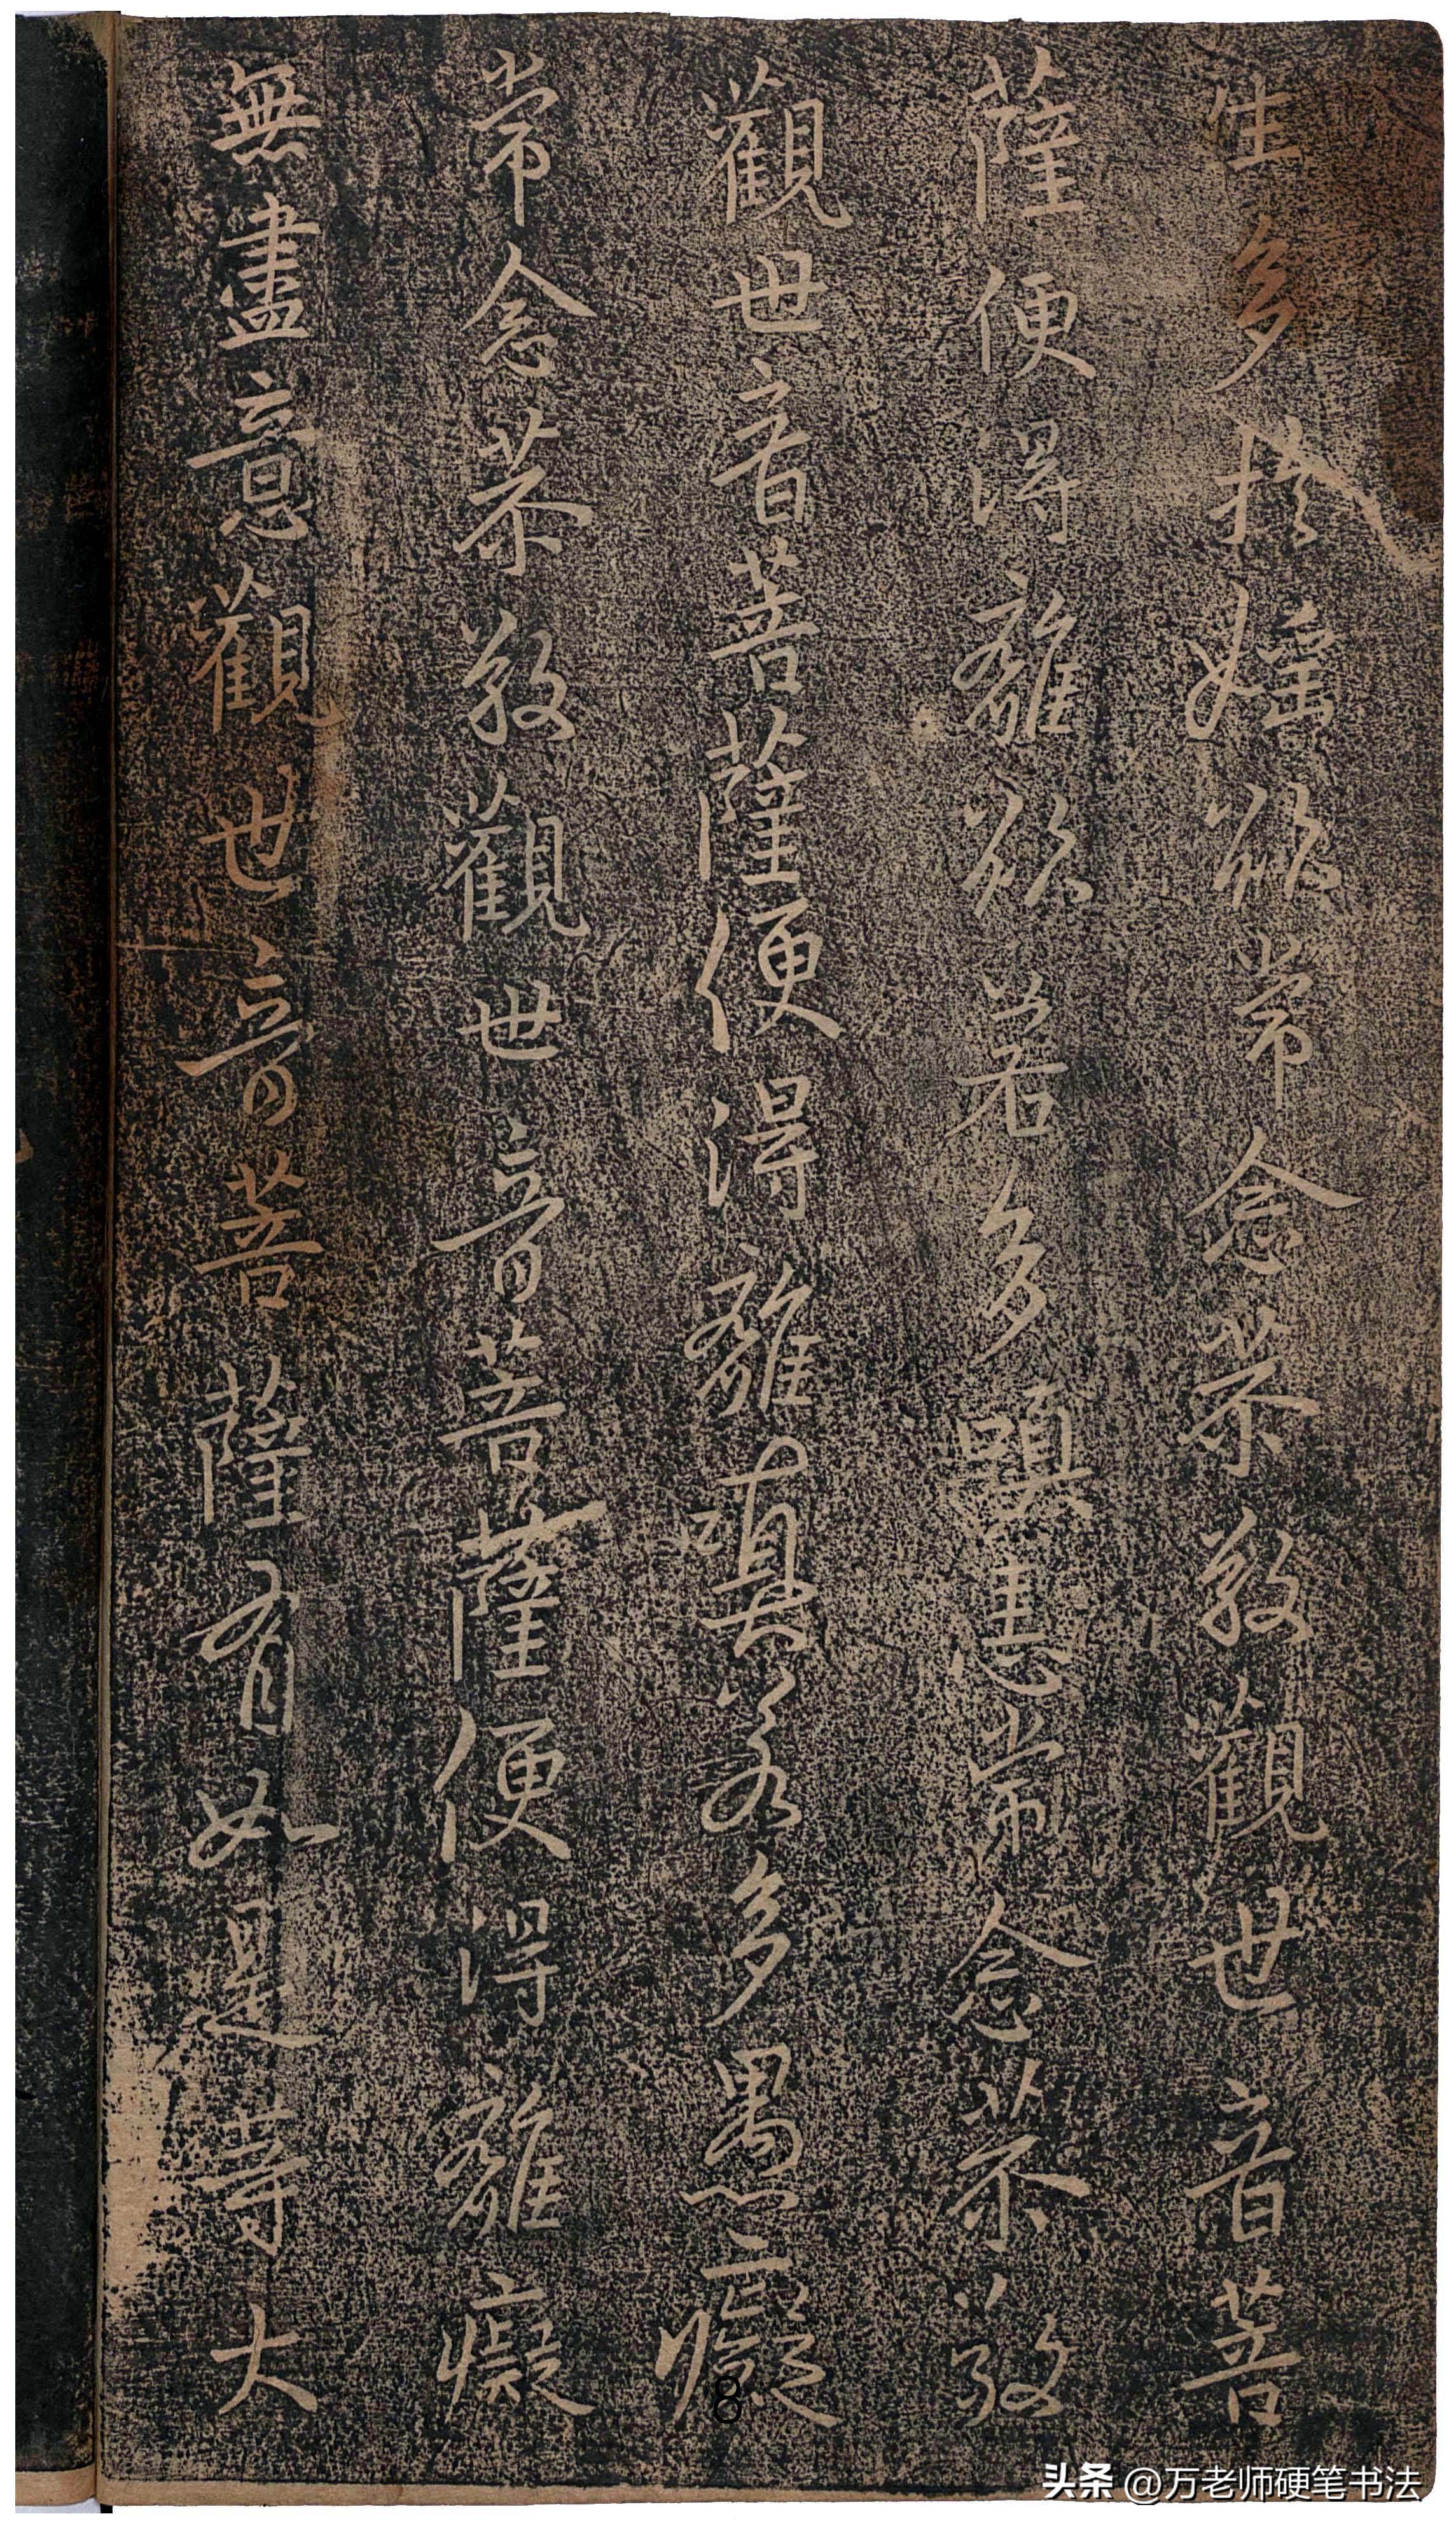 生多於婬欲常念恭敬觀世音菩
薩便得離欲若多瞋恚常念恭敬
觀世音菩薩便得離瞋若多愚癡
常念恭敬觀世音菩薩便得離癡
無盡意觀世音菩薩有如是等大
8
头条 @万老师硬笔书法